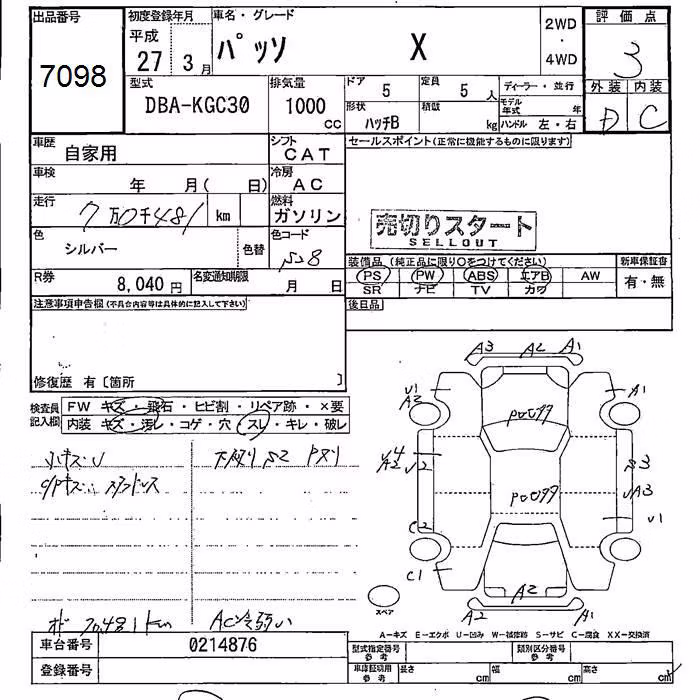 出品番号 初度登録年月 車名・グレード 2WD 評価点
平成 ・
7098 27 3月 パッソ X 4WD 3
型式 排気量 ドア 5 定員 5 人 ディーラー・並行 外装 内装
DBA-KGC30 1000 cc 形状 ハッチB 積載 kg モデル年式 年 D C
ハンドル 左・右
車歴 自家用 シフト CAT セールスポイント(正常に機能するものに限ります)
車検 年 月( 日) 冷房 AC
走行 7万0千481 km 燃料 ガソリン 売切りスタート
SELLOUT
色 シルバー 色替 色コード S28
装備品(純正品に限り○をつけてください) 新車保証書
R券 8,040円 名変通知期限 月 日 PS PW ABS エアB AW 有・無
SR ナビ TV カワ
注意事項申告欄(不具合内容等は具体的に記入して下さい) 後日品
修復歴 有〔箇所 〕
検査員記入欄 FW キズ・飛石・ヒビ割・リペア跡・×要
内装 キズ・汚レ・コゲ・穴・スレ・キレ・破レ
小キズ、U 下廻り S2
A3 A2 A1
U1 A2 A1
P0099
A2 U2 S3
P0099 UA3
C2 U1
C1
A2
A2 A1
スペア
70,481km AC冷弱い
A-キズ E-エクボ U-凹み W-補修跡 S-サビ C-腐食 XX-交換済
車台番号 0214876 型式指定番号 参考 類別区分番号 参考
登録番号 車庫証明用 参考 長さ cm 幅 cm 高さ cm